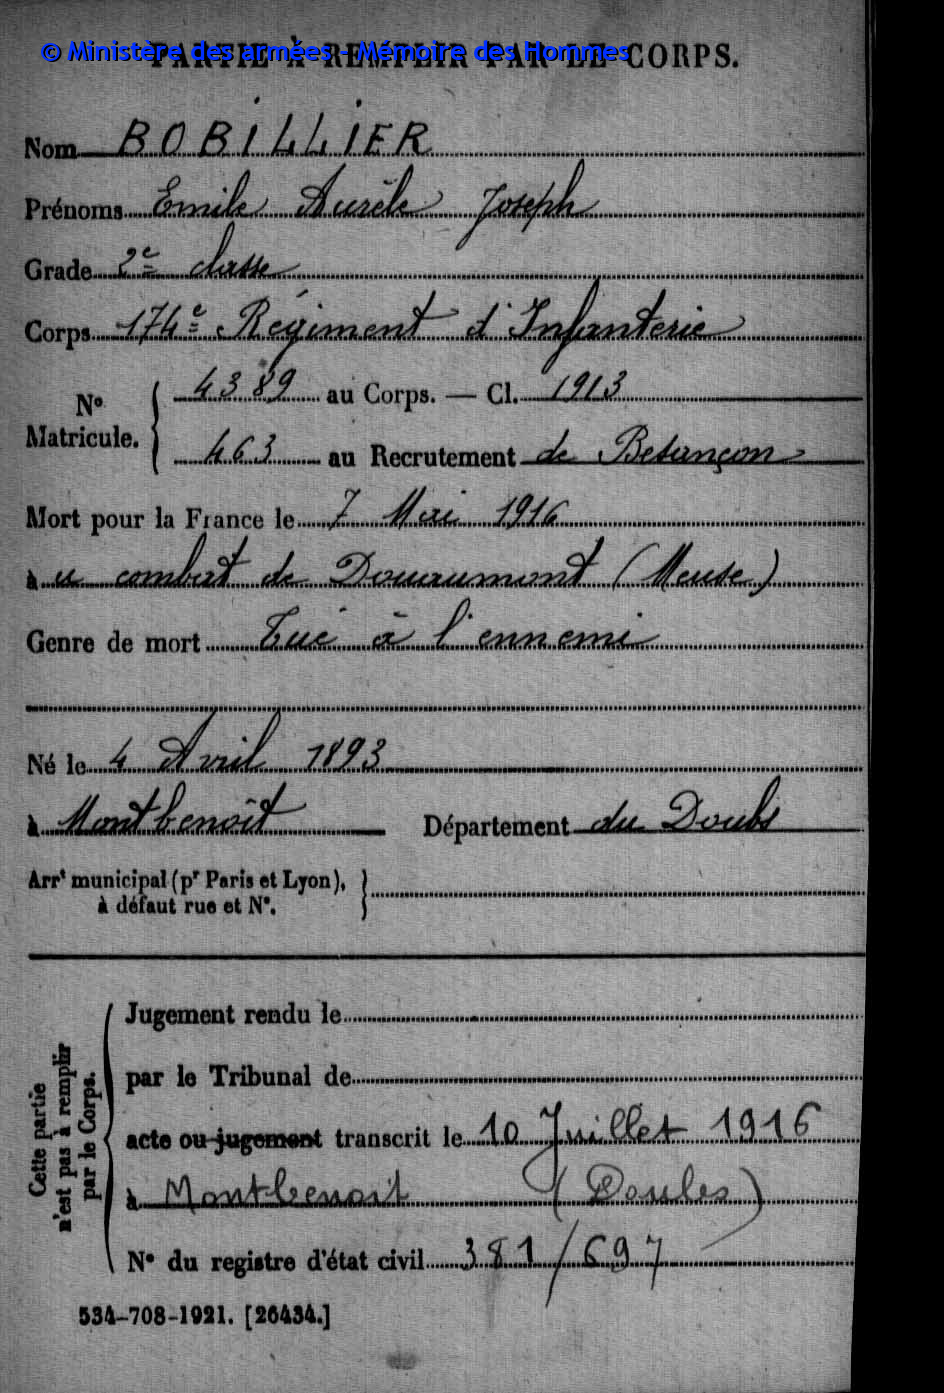 © Ministère des armées - Mémoire des Hommes
PARTIE À REMPLIR PAR LE CORPS.
Nom BOBILLIER
Prénoms Emile Aurèle Joseph
Grade 2e classe
Corps 174e Régiment d'Infanterie
No Matricule. { 4389 au Corps. — Cl. 1913
463 au Recrutement de Besançon
Mort pour la France le 7 Mai 1916
à u combat de Douaumont (Meuse)
Genre de mort Tué à l'ennemi
Né le 4 Avril 1893
à Montbenoît Département du Doubs
Arrt municipal (pr Paris et Lyon),
à défaut rue et No.
Cette partie
n'est pas à remplir
par le Corps.
Jugement rendu le
par le Tribunal de
acte ou jugement transcrit le 10 Juillet 1916
à Montbenoit (Doubs)
No du registre d'état civil 381/697
534-708-1921. [26434.]